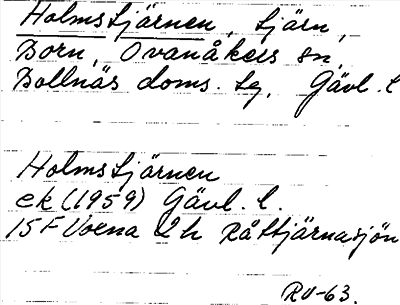 Holmstjärnen, tjärn,
Born, Ovanåkers sn,
Bollnäs doms. tg, Gävl. l
Holmstjärnen
ek (1959) Gävl. l.
15F Voxna 2h Råttjärnasjön
RU-63.